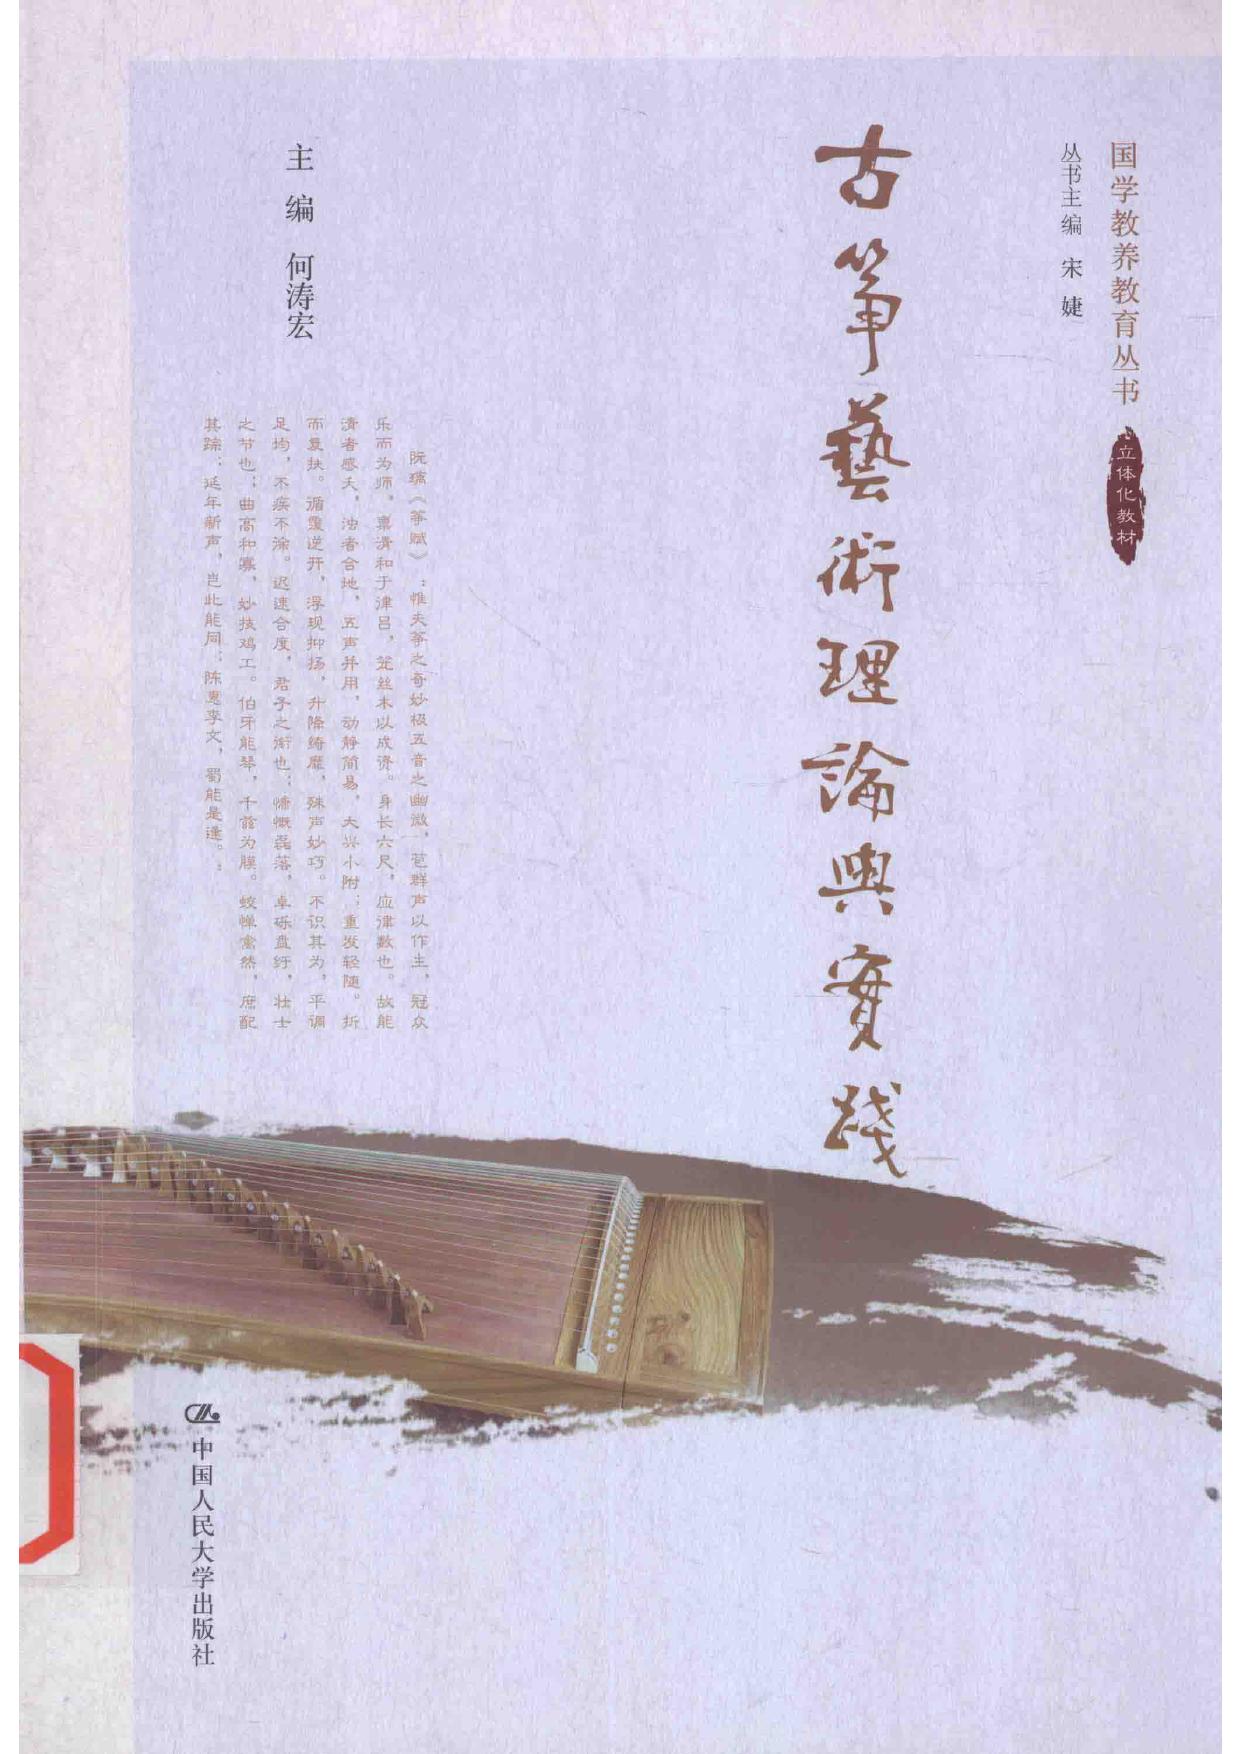 国学教养教育丛书
立体化教材
丛书主编 宋婕
古筝藝術理論與實踐
阮瑀《筝赋》：惟夫筝之奇妙极五音之幽微，苞群声以作主，冠众
乐而为师。禀清和于律吕，笼丝木以成资。身长六尺，应律数也。故能
清者感天，浊者合地，五声并用，动静简易，大兴小附；重发轻随。折
而复扶。循覆逆开，浮现抑扬，升降绮靡，殊声妙巧。不识其为，平调
足均，不疾不徐。迟速合度，君子之衢也；慷慨磊落，卓砾盘纡，壮士
之节也；曲高和寡，妙技鸡工。伯牙能琴，千兹为朦。
其踪；延年新声，岂此能同；陈惠李文，蜀能是逢。
主编 何涛宏
中国人民大学出版社